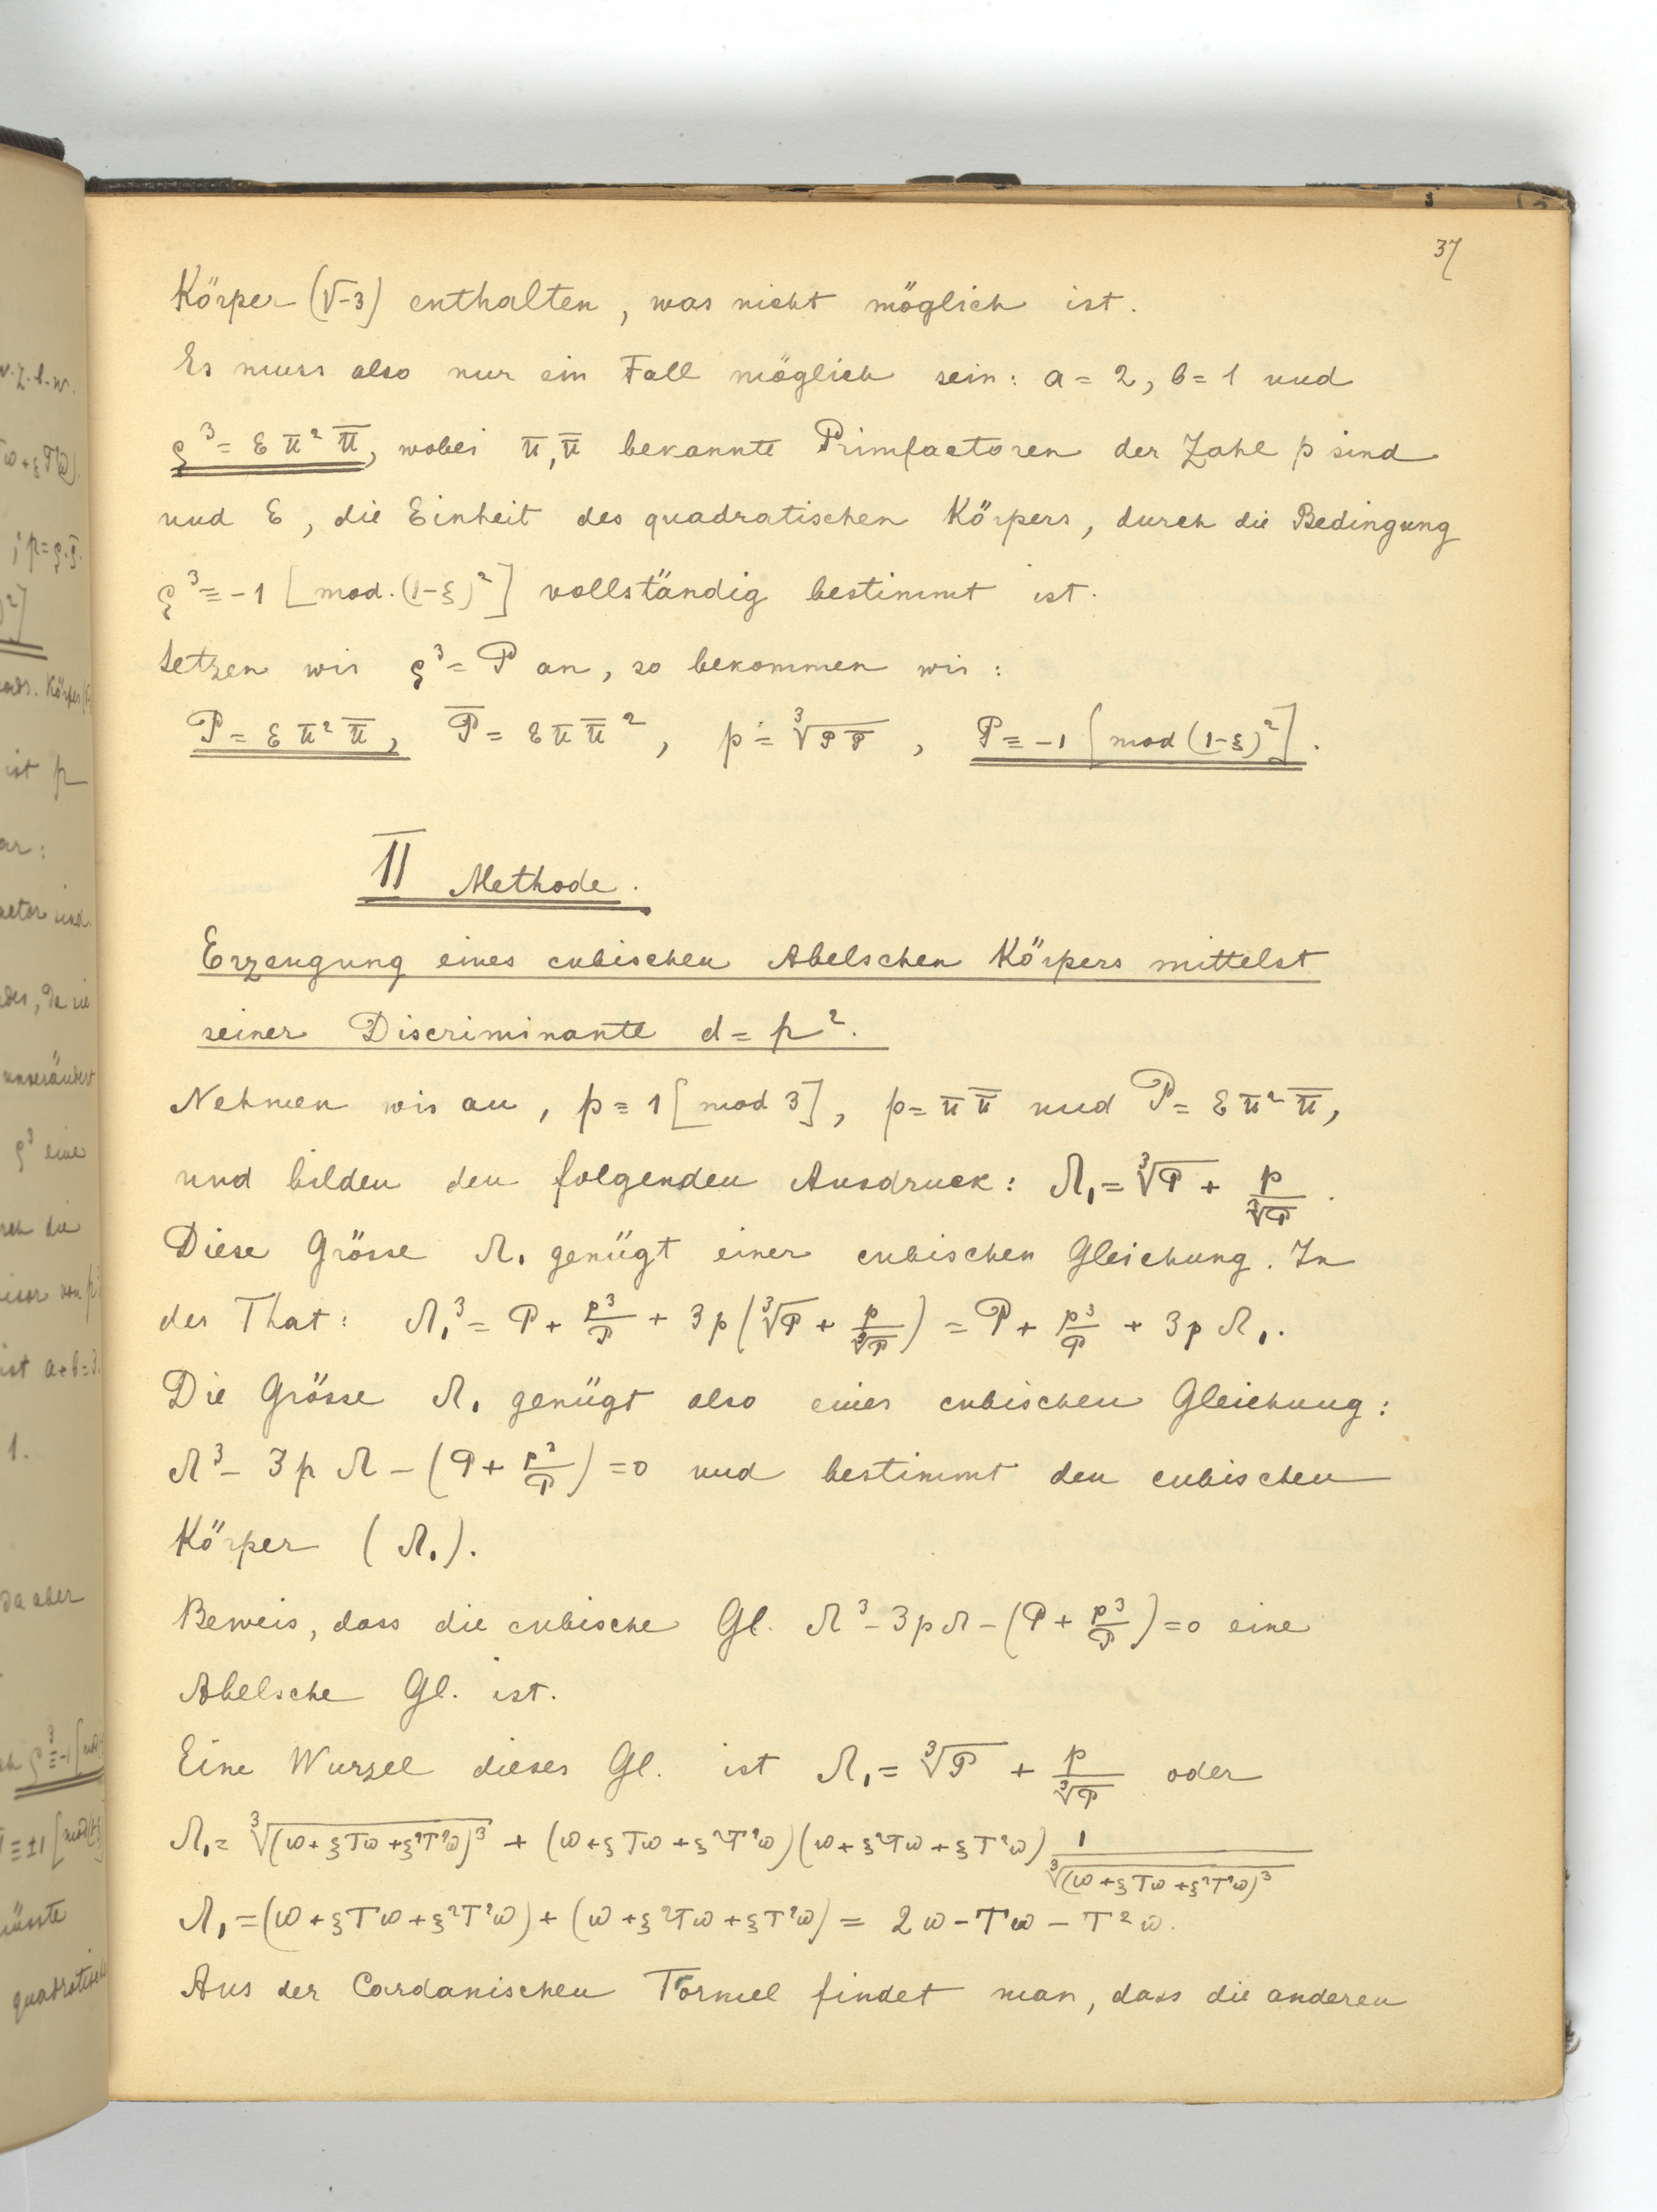 37
Körper (√-3) enthalten, was nicht möglich ist.
Es muss also nur ein Fall möglich sein: a = 2, b = 1 und
ϱ³ = ε π² π̅, wobei π, π̅ bekannte Primfactoren der Zahl p sind
und ε, die Einheit des quadratischen Körpers, durch die Bedingung
ϱ³ ≡ -1 [mod. (1-ξ)²] vollständig bestimmt ist.
Setzen wir ϱ³ = P an, so bekommen wir:
P = ε π² π̅, P̅ = ε π π̅², p = ∛(P P̅), P ≡ -1 [mod (1-ξ)²].
II Methode.
Erzeugung eines cubischen Abelschen Körpers mittelst
seiner Discriminante d = p².
Nehmen wir an, p ≡ 1 [mod 3], p = π π̅ und P = ε π² π̅,
und bilden den folgenden Ausdruck: Λ₁ = ∛P + p/∛P.
Diese Grösse Λ₁ genügt einer cubischen Gleichung. In
der That: Λ₁³ = P + p³/P + 3p(∛P + p/∛P) = P + p³/P + 3p Λ₁.
Die Grösse Λ₁ genügt also einer cubischen Gleichung:
Λ³ - 3p Λ - (P + p³/P) = 0 und bestimmt den cubischen
Körper (Λ₁).
Beweis, dass die cubische Gl. Λ³ - 3pΛ - (P + p³/P) = 0 eine
Abelsche Gl. ist.
Eine Wurzel dieser Gl. ist Λ₁ = ∛P + p/∛P oder
Λ₁ = ∛(ω + ξTω + ξ²T²ω)³ + (ω + ξTω + ξ²T²ω)(ω + ξ²Tω + ξT²ω) 1/∛(ω + ξTω + ξ²T²ω)³
Λ₁ = (ω + ξTω + ξ²T²ω) + (ω + ξ²Tω + ξT²ω) = 2ω - Tω - T²ω.
Aus der Cardanischen Formel findet man, dass die anderen